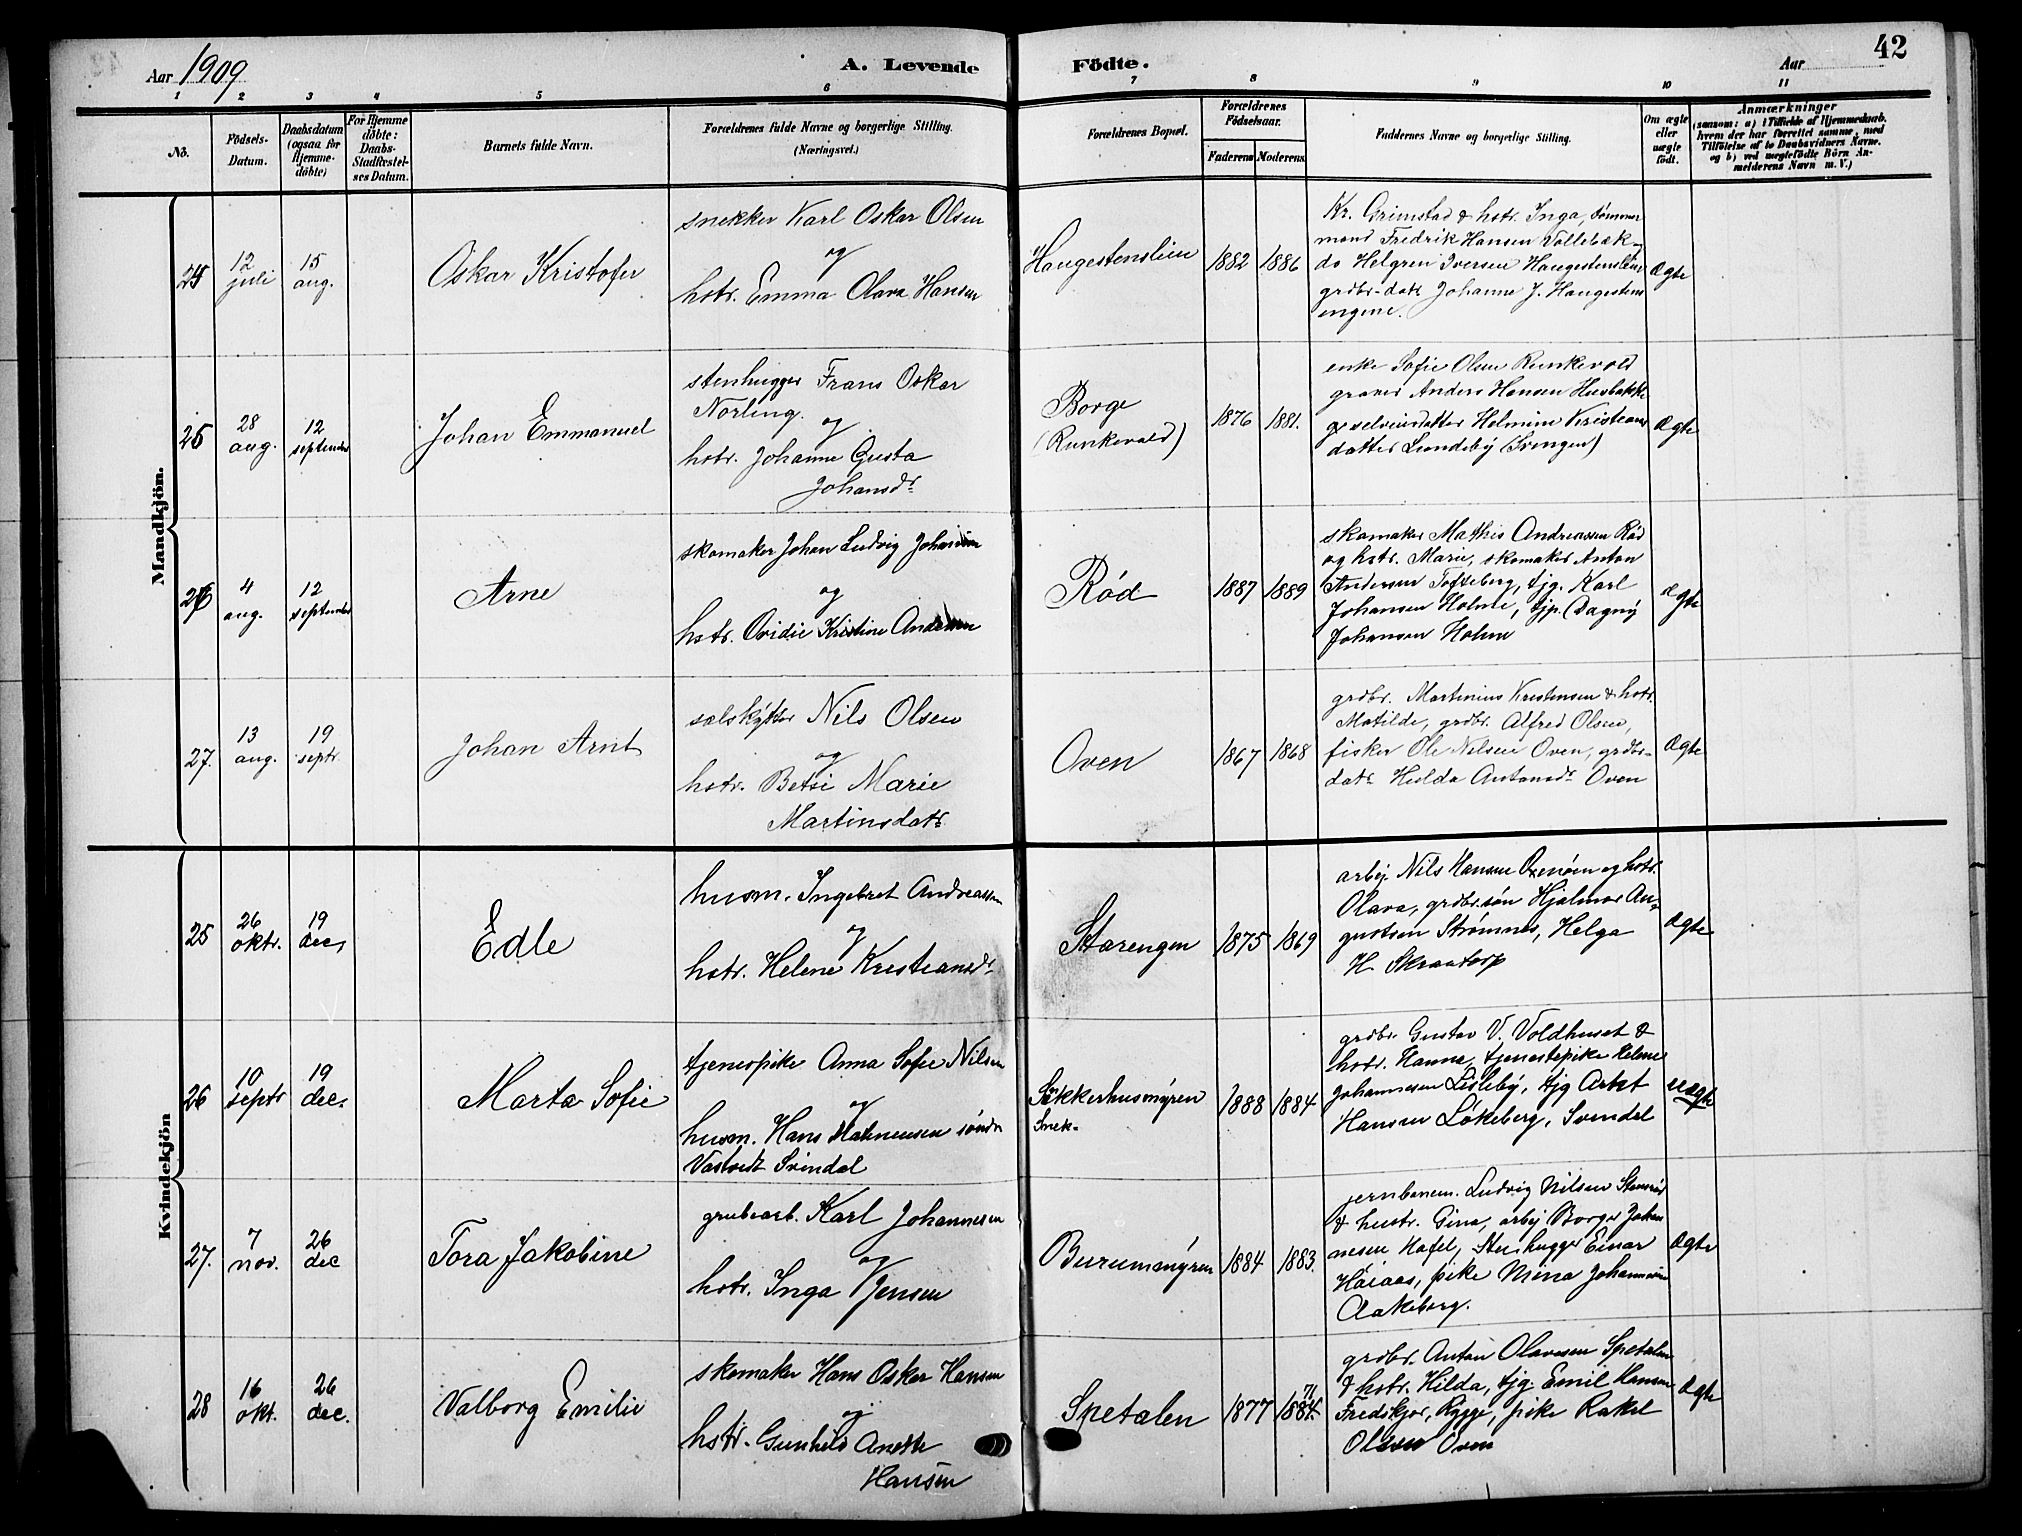 42
Aar 1909
A. Levende Födte.
Aar
1 2 3 4 5 6 7 8 9 10 11
No.
Födsels-
Datum.
Daabsdatum
(ogsaa for
Hjemme-
döbte)
For Hjemme
döbte:
Daabs-
Stadfæstel-
ses Datum.
Barnets fulde Navn.
Forældrenes fulde Navne og borgerlige Stilling.
(Næringsvei.)
Forældrenes Bopæl.
Forældrenes
Födselsaar.
Faderens Moderens
Faddernes Navne og borgerlig Stilling.
Om ægte
eller
uægte
födt.
Anmærkninger
(saasom: a) i Tilfælde af Hjemmedaab.
hvem der har forrettet samme, med
Tilföielse af to Daabsvidners Navne.
og b) ved uægtefödte Börn An-
melderens Navn m. V.)
Mandkjön.
25
12 juli
15 aug.
Oskar Kristofer
snekker Karl Oskar Olsen
og
hstr. Emma Olava Hansen
Haugestenslien
1882 1886
Kr. Grimstad & hstr. Inga, tømmer
mand Fredrik Hansen Vollebæk
do Helgren Iversen Haugestenslien
grdbr-datr Johanne J. Haugestens
engene.
ægte
28 aug.
12 september
Johan Emmanuel
stenhugger Frans Oskar
Norling.
og
hstr. Johanne Gusta
Johansdr
Borge
(Runkevold)
1876 1881.
enke Sofie Olsen Runkevold
graver Anders Hansen Husbakke
datter Lundeby (Svingen)
ægte
26
4 aug.
12 september
Arne
skomaker Johan Ludvig
og
hstr. Ovidie Kristine
Rød
1887 1889
skomaker Mathis Andreassen Rød
og hstr. Marie, skomaker Anton
Andersen Tofteberg, tjg. Karl
Johansen Holme, tjp. Dagny
Johansen Holm
ægte
27.
13 aug.
19 septr.
Johan Arnt
sælskytter Nils Olsen
og
hstr. Betsi Marie
Martinsdatr.
Oven
1867 1868
grdbr. Martinius Kristensen & hstr.
Matilde, grdbr. Alfred Olsen,
fisker Ole Nilsen Oven, grdbr-
datr Hulda Antonsdr Oven
ægte
Kvindekjön
25
26 oktr.
19 dec,
Edle
husm. Ingebret Andreassen
og
hstr. Helene Kristiansdr.
Starengen
1875 1869
arbej. Nils Hansen Oxenøen og hstr.
Olava, grdbr.søn Hjalmar Au-
gustsen Strømnes, Helga
H. Skraatorp
ægte
26
10 septr
19 dec.
Marta Sofie
tjenespike Anna Sofie Nilsen
og
husm. Hans søndr
Svindal
Sikkerhusmyren
1888 1884
grdbr. Gustav V. Voldhuset &
hstr. Hanna, tjenestepike Helene
Johannesen Lisleby, tjg
Hansen Løkeberg, Svendal
uægte
27.
7 nov.
26 dec
Tora Jakobine
grubearb. Karl Johannesen
og
hstr. Inga Jensen
Burummyren
1884 1883.
jernbanem. Ludvig Nilsen
& hustr. Gina, arbej Borger Johan
nesen Hafel, Stenhugger Einar
Høiaas, pike Mina Johannesen
Aakeberg.
ægte
28
16 okt.
26 dec.
Valborg Emilie
skomaker Hans Oskar Hansen
og
hstr. Gunhild Anette
Hansen
Spetalen
1877 1884. 71
grdbr. Anton Olavesen Spetalen
& hstr. Hilda, tjg Emil Hansen
Fredskjør, Rygge, pike Rakel
Olsen Oven
ægte